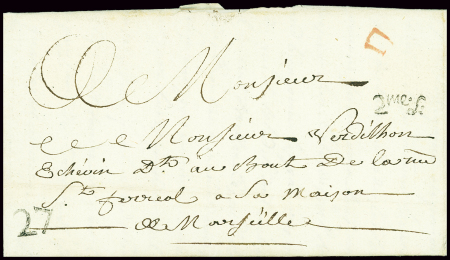 A Monsieur
2me. S.
Monsieur Verdilhon
Echevin Dt. au bout De la rue
St. ferreol a Sa Maison
27
A Marseille